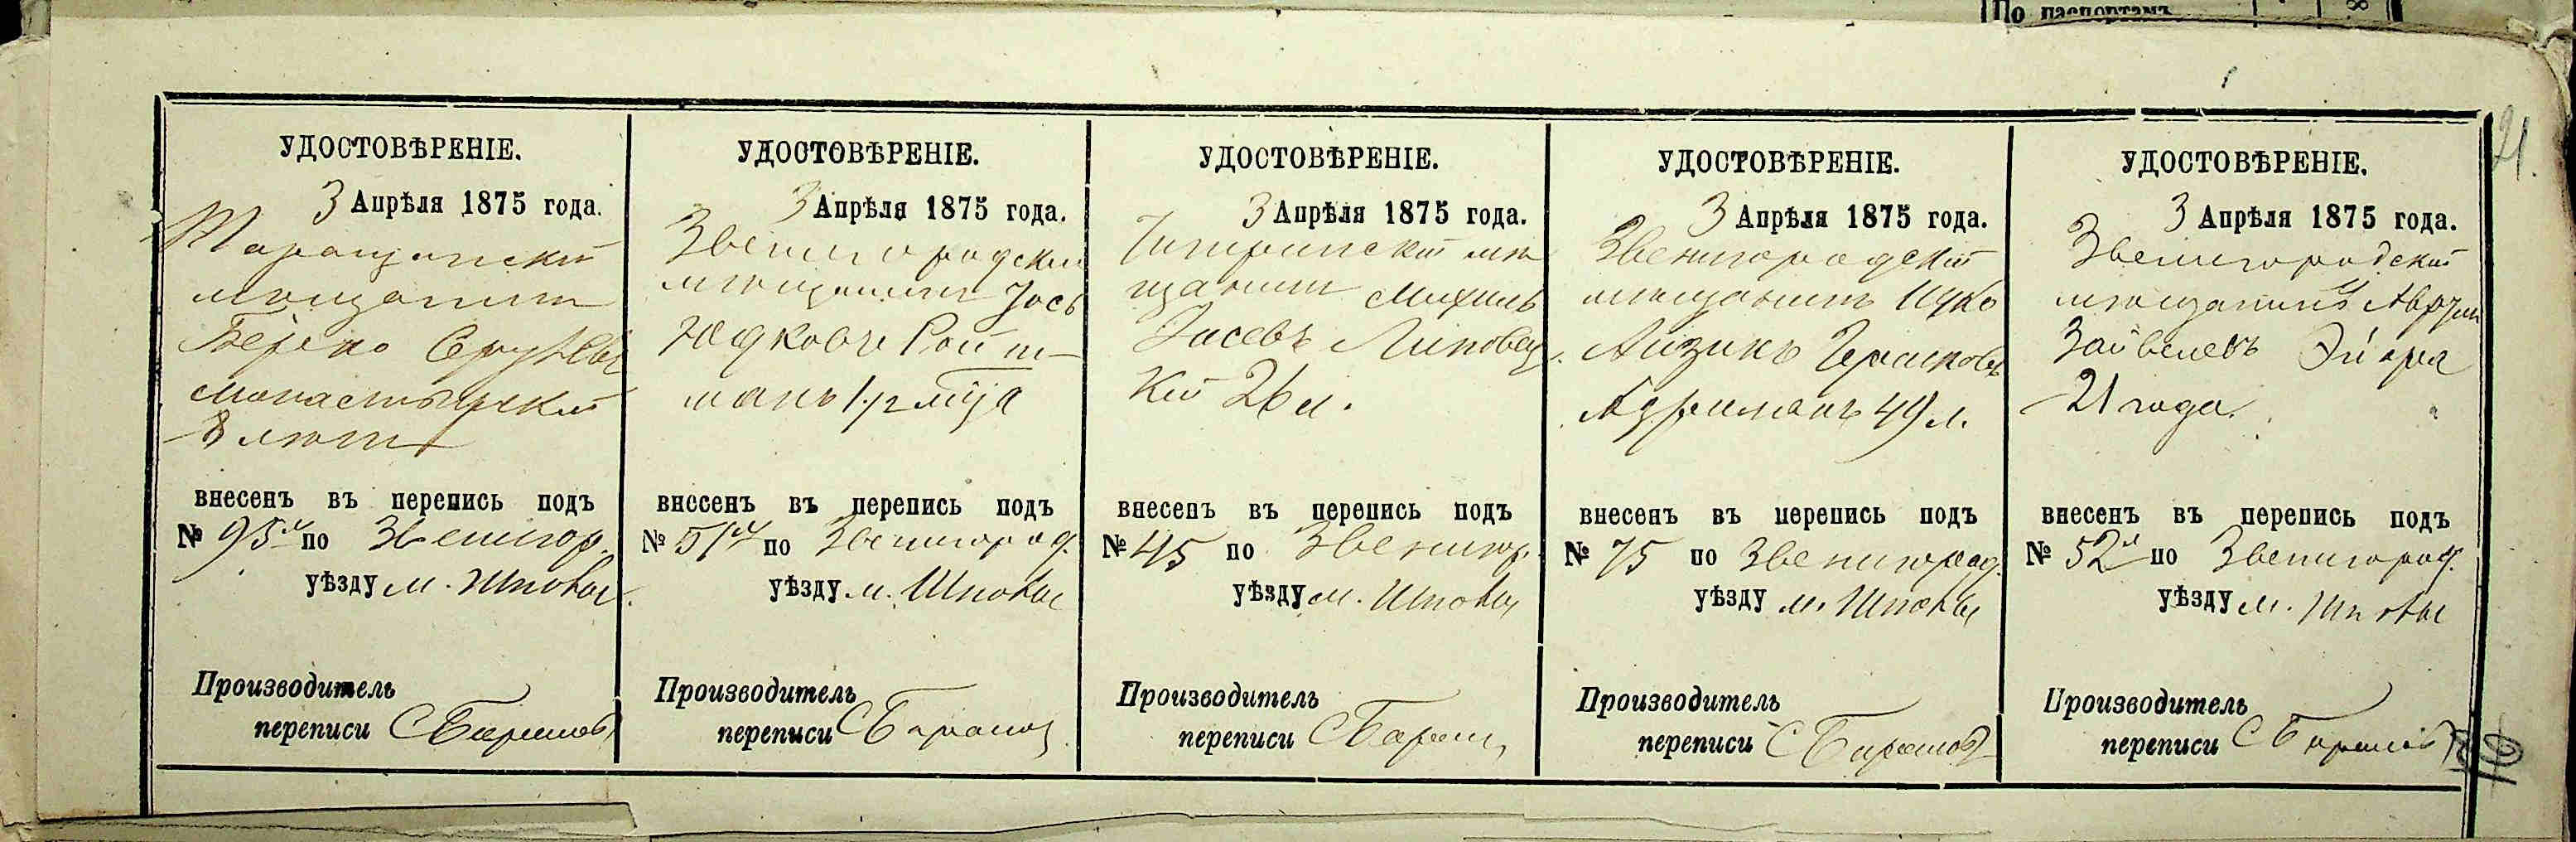 По паспортамъ
21
УДОСТОВѢРЕНІЕ.
3 Апрѣля 1875 года.
Таращанскій
мѣщанинъ
Берко Срулевъ
Монастырскій
8 лѣтъ
внесенъ въ перепись подъ
№ 95 по Звенигор.
уѣзду м. Шпола
Производитель
переписи С Барановъ
УДОСТОВѢРЕНІЕ.
3 Апрѣля 1875 года.
Звенигородскій
мѣщанинъ Іось
Юдковъ Ройт-
манъ 1 1/2 мѣца
внесенъ въ перепись подъ
№ 51 по Звенигород.
уѣзду м. Шпола
Производитель
переписи С Барановъ
УДОСТОВѢРЕНІЕ.
3 Апрѣля 1875 года.
Чигиринскій мѣ
щанинъ Михиль
Іосевъ Липовец
кій 26 л.
внесенъ въ перепись подъ
№ 45 по Звенигор.
уѣзду м. Шпола
Производитель
переписи С Баран
УДОСТОВѢРЕНІЕ.
3 Апрѣля 1875 года.
Звенигородскій
мѣщанинъ Ицко
Айзикъ Гершковъ
49 л.
внесенъ въ перепись подъ
№ 75 по Звенигород.
уѣзду м. Шпола
Производитель
переписи С Барановъ
УДОСТОВѢРЕНІЕ.
3 Апрѣля 1875 года.
Звенигородскій
мѣщанинъ Аврум
Зайвелевъ
21 года.
внесенъ въ перепись подъ
№ 52 по Звенигород.
уѣзду м. Шпола
Производитель
переписи С Барановъ